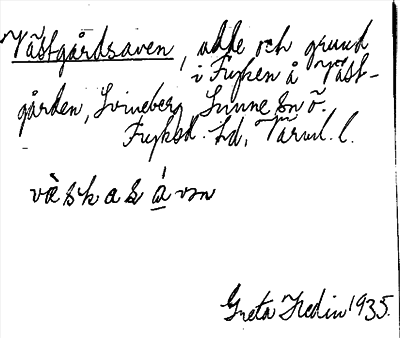 Västgårdsaven, udde och grund
i Fryken å Väst-
gården, Svineberg Sunne sn ö.
Fryksd. hd, Värml. l.
väskasåvən
Greta Hedin 1935.